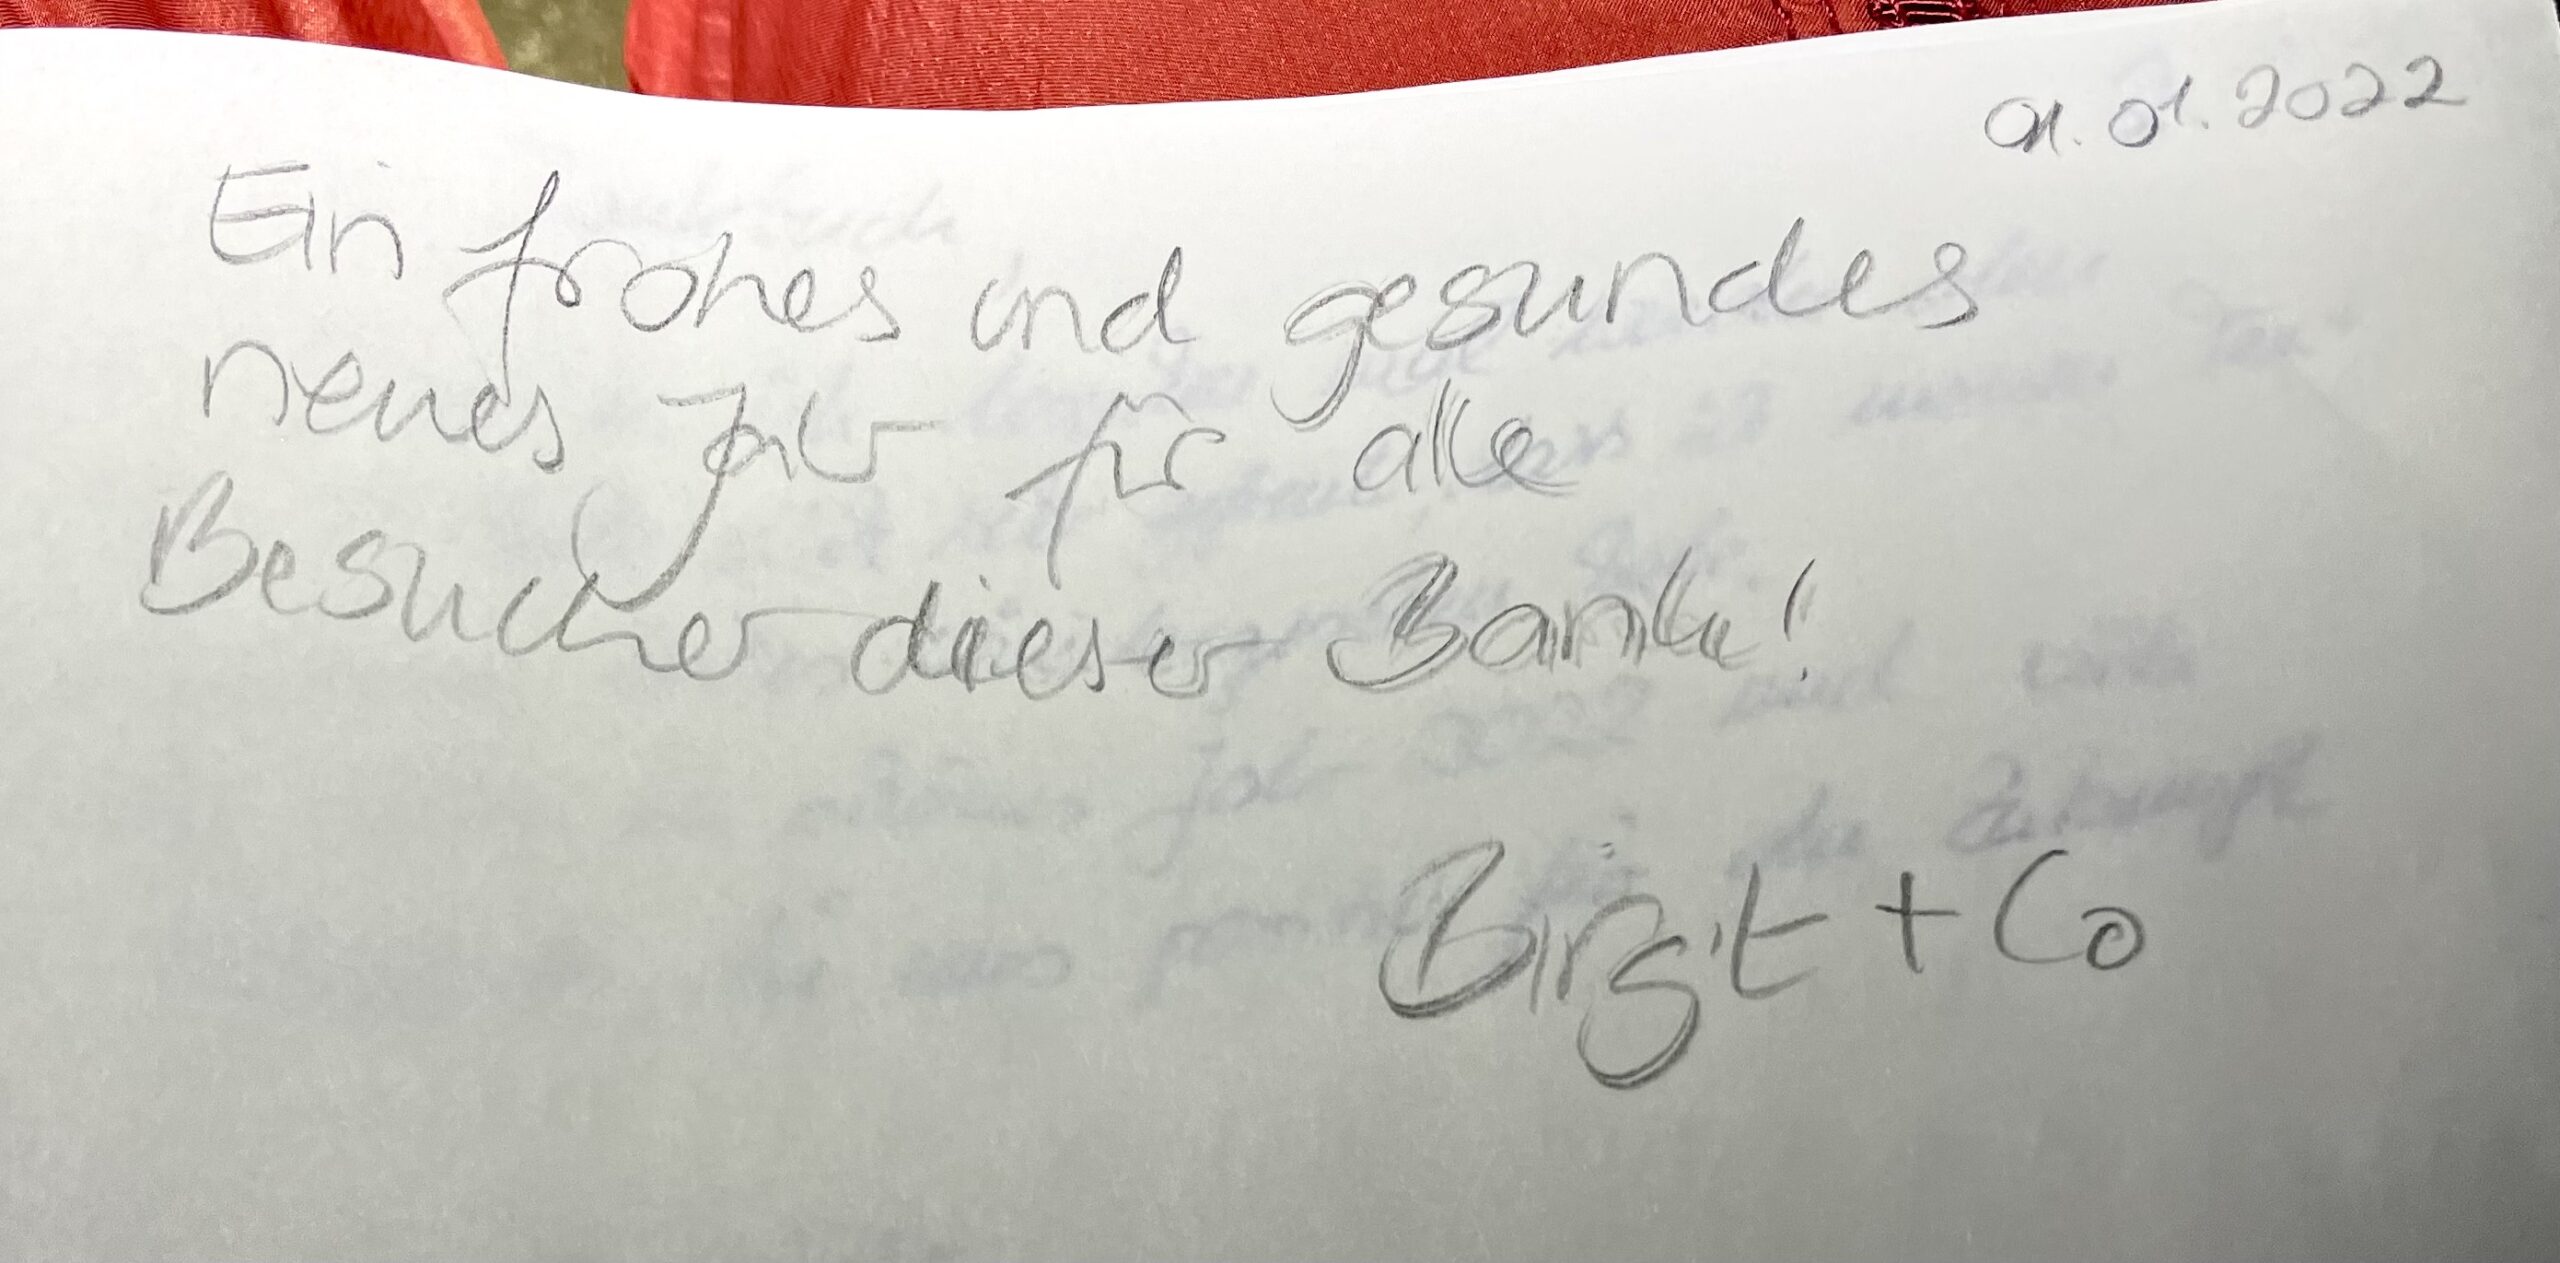 01.01.2022
Ein frohes und gesundes
neues Jahr für alle
Besucher dieser Bank!
Birgit + Co